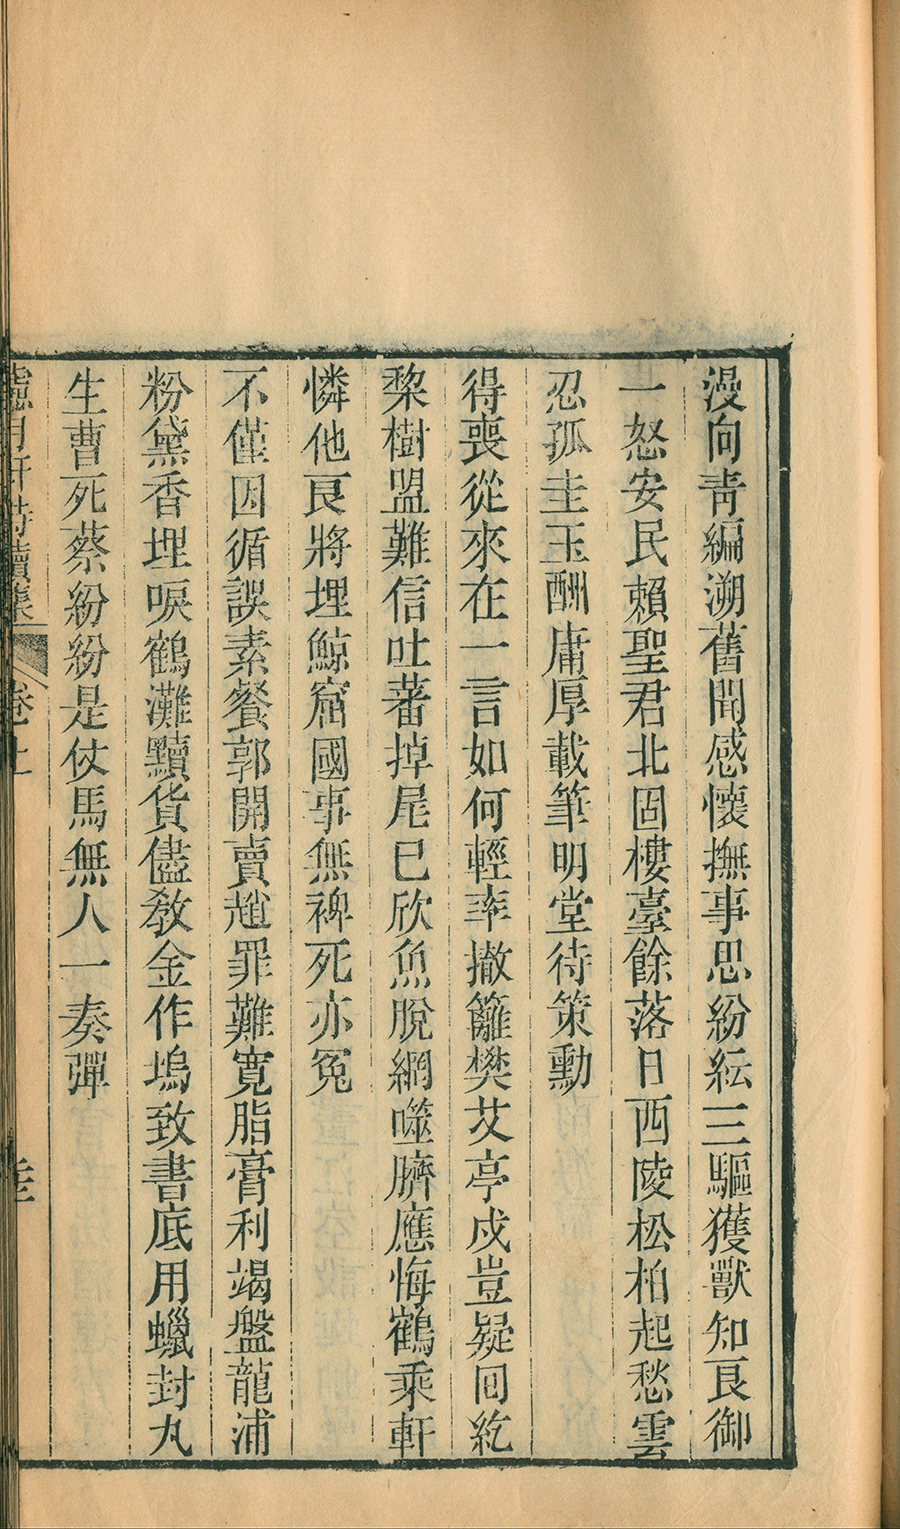 漫向靑編溯舊聞感懷撫事思紛紜三驅獲獸知良御
一怒安民賴聖君北固樓臺餘落日西陵松柏起愁雲
忍孤圭玉酬庸厚載筆明堂待策勳
得喪從來在一言如何輕率撤籬樊艾亭戍豈疑回紇
棃樹盟難信吐蕃掉尾已欣魚脫網噬臍應悔鶴乘軒
憐他良將埋鯨窟國事無裨死亦冤
不僅因循誤素餐郭開賣趙罪難寬脂膏利竭盤龍浦
粉黛香埋唳鶴灘黷貨儘敎金作塢致書底用蠟封丸
生曹死蔡紛紛是仗馬無人一奏彈
月軒詩續集 卷上